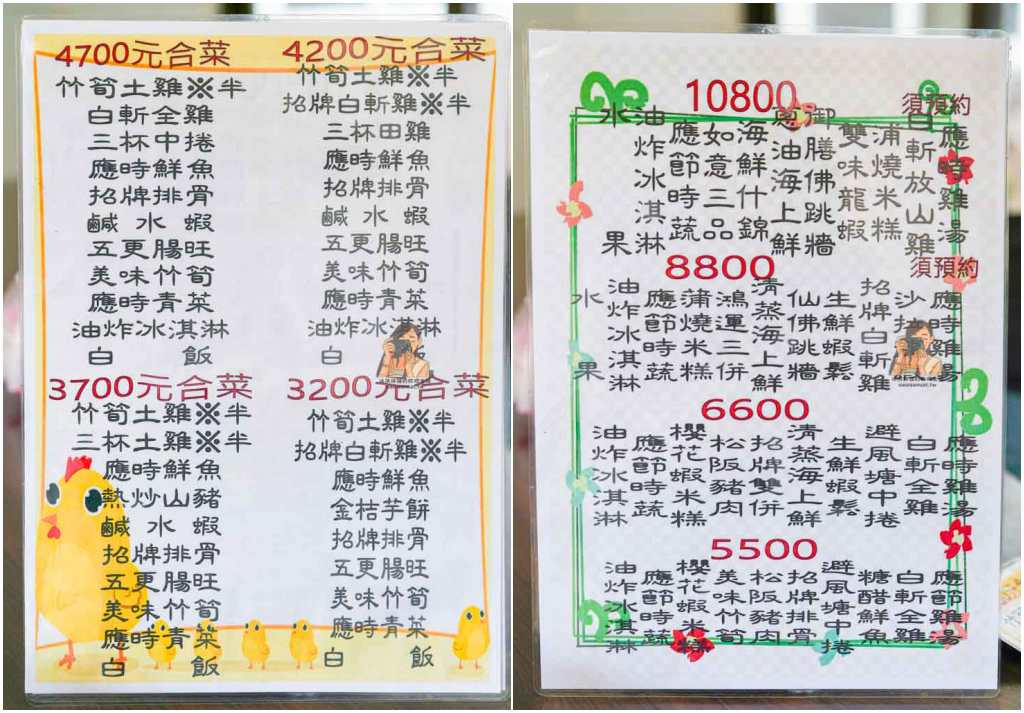 4700元合菜
竹筍土雞※半
白斬全雞
三杯中捲
應時鮮魚
招牌排骨
鹹水蝦
五更腸旺
美味竹筍
應時青菜
油炸冰淇淋
白飯
4200元合菜
竹筍土雞※半
招牌白斬雞※半
三杯田雞
應時鮮魚
招牌排骨
鹹水蝦
五更腸旺
美味竹筍
應時青菜
油炸冰淇淋
白飯
3700元合菜
竹筍土雞※半
三杯土雞※半
應時鮮魚
熱炒山豬
鹹水蝦
招牌排骨
五更腸旺
美味竹筍
應時青菜
白飯
3200元合菜
竹筍土雞※半
招牌白斬雞※半
應時鮮魚
金桔芋餅
招牌排骨
五更腸旺
美味竹筍
應時青菜
白飯
10800
須預約
應時雞湯
白斬放山雞
浦燒米糕
雙味龍蝦
御膳佛跳牆
蔥油海上鮮
海鮮什錦
如意三品
應節時蔬
油炸冰淇淋
水果
8800
須預約
應時雞湯
沙拉
招牌白斬雞
生鮮蝦鬆
仙佛跳牆
清蒸海上鮮
鴻運三併
蒲燒米糕
應節時蔬
油炸冰淇淋
水果
6600
應時雞湯
白斬全雞
避風塘中捲
生鮮蝦鬆
清蒸海上鮮
招牌雙併
松阪豬肉
櫻花蝦米糕
應節時蔬
油炸冰淇淋
5500
應節雞湯
白斬全雞
糖醋鮮魚
避風塘中捲
招牌排骨
松阪豬肉
美味竹筍
櫻花蝦米糕
應節時蔬
油炸冰淇淋